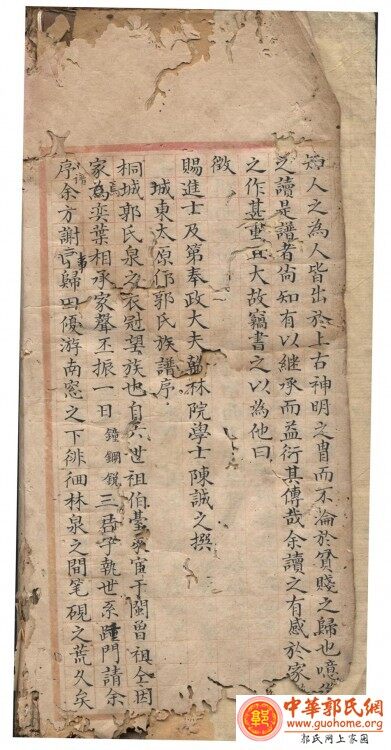 知人之為人皆出於上古神明之冑而不淪於貧賤之歸也噫
之讀是譜者尚知有以繼承而益衍其傳哉余讀之有感於家
之作甚重且大故竊書之以為他曰
徵
賜進士及第奉政大夫翰林院學士陳誠之撰
城東太原邱郭氏族譜序
桐城郭氏泉之衣冠望族也自六世祖伯臺來宦于閩曾祖仝因
家焉奕葉相承家聲丕振一日鐘鋼銳三昆字執世系踵門請余
譜
序余方謝事言歸田優游南窓之下徘徊林泉之間笔硯之荒久矣
中華郭氏網
www.guohome.org
郭氏网上家園